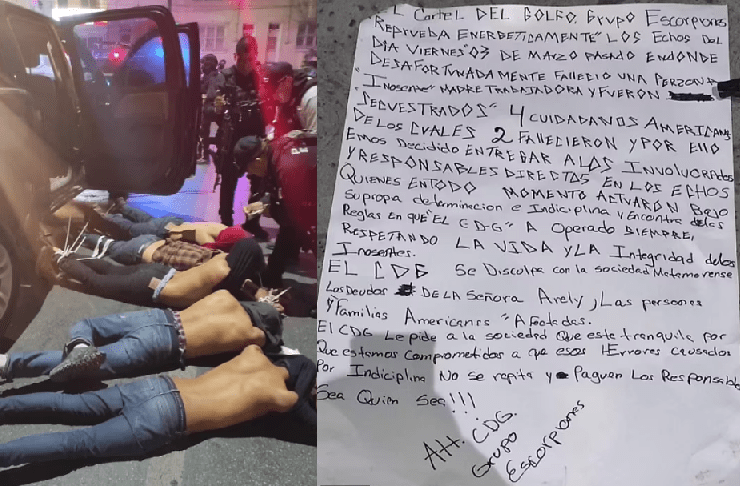 L Cartel DEL GOLFO, GRUPO EscorpionES
REPRUEBA ENERGETICAMENTE" LOS EchOS DEL
DIA VIERNES" 03 DE MARZO PASADO ENDONDE
DESAFORTUNADAMENTE FALLECIO UNA PERSONA
"Inosente" MADRE TRABAJADORA Y FUERON
SECUESTRADOS" 4 CUIDADANOS AMERICANS
DE LOS CUALES 2 FALLECIERON y POR EllO
EMOS DECIDIDO ENTREGAR A LOS INVOLUCRADOS
Y RESPONSABLES DIRECTOS EN LOS ECHOS
QUIENES ENTODO MOMENTO ACTUARON Bajo
Su propa determinacion e Indiciplina y Encontra de las
Reglas en que "EL CDG" A Operado SIEMPRE,
RESPETANDO LA VIDA y LA Integridad de los
Inosentes.
EL CDG Se Disculpa con la sociedad Matamorense
Los Deudos DE LA SEÑORA Arely, Las personas
y familias Americans "Afectadas.
El CDG Le pide a la sociedad Que este tranquila por
Que estamos Comprometidos a que esos Errores causados
Por Indiciplina No Se repita y Paguen Los Responsable
Sea Quien Sea!!!
Att. CDG.
Grupo
Escorpiones